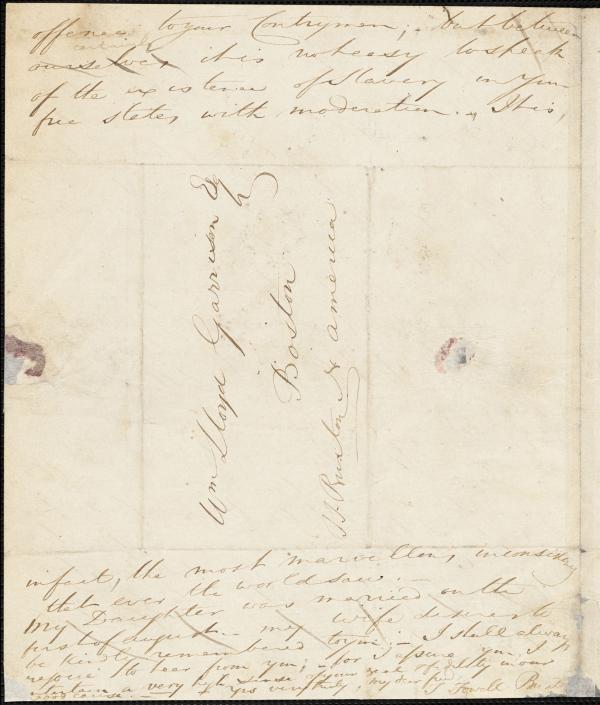 offence to your Contrymen; but between
certain
ourselves it is not easy to speak
of the existence of Slavery in your
free states, with moderation. It is,
Wm Lloyd Garrison Esq
Boston
N America
in fact, the most marvellous inconsistency
that ever the world saw. —
My Daughter was married on the
first of august — my wife desires to
be kindly remembered to you — I shall always
rejoice to hear from you; — for I assure you, I
entertain a very high sense of your zeal & fidelity in our
good cause. — Yrs very truly, my dear
Fowell Buxton